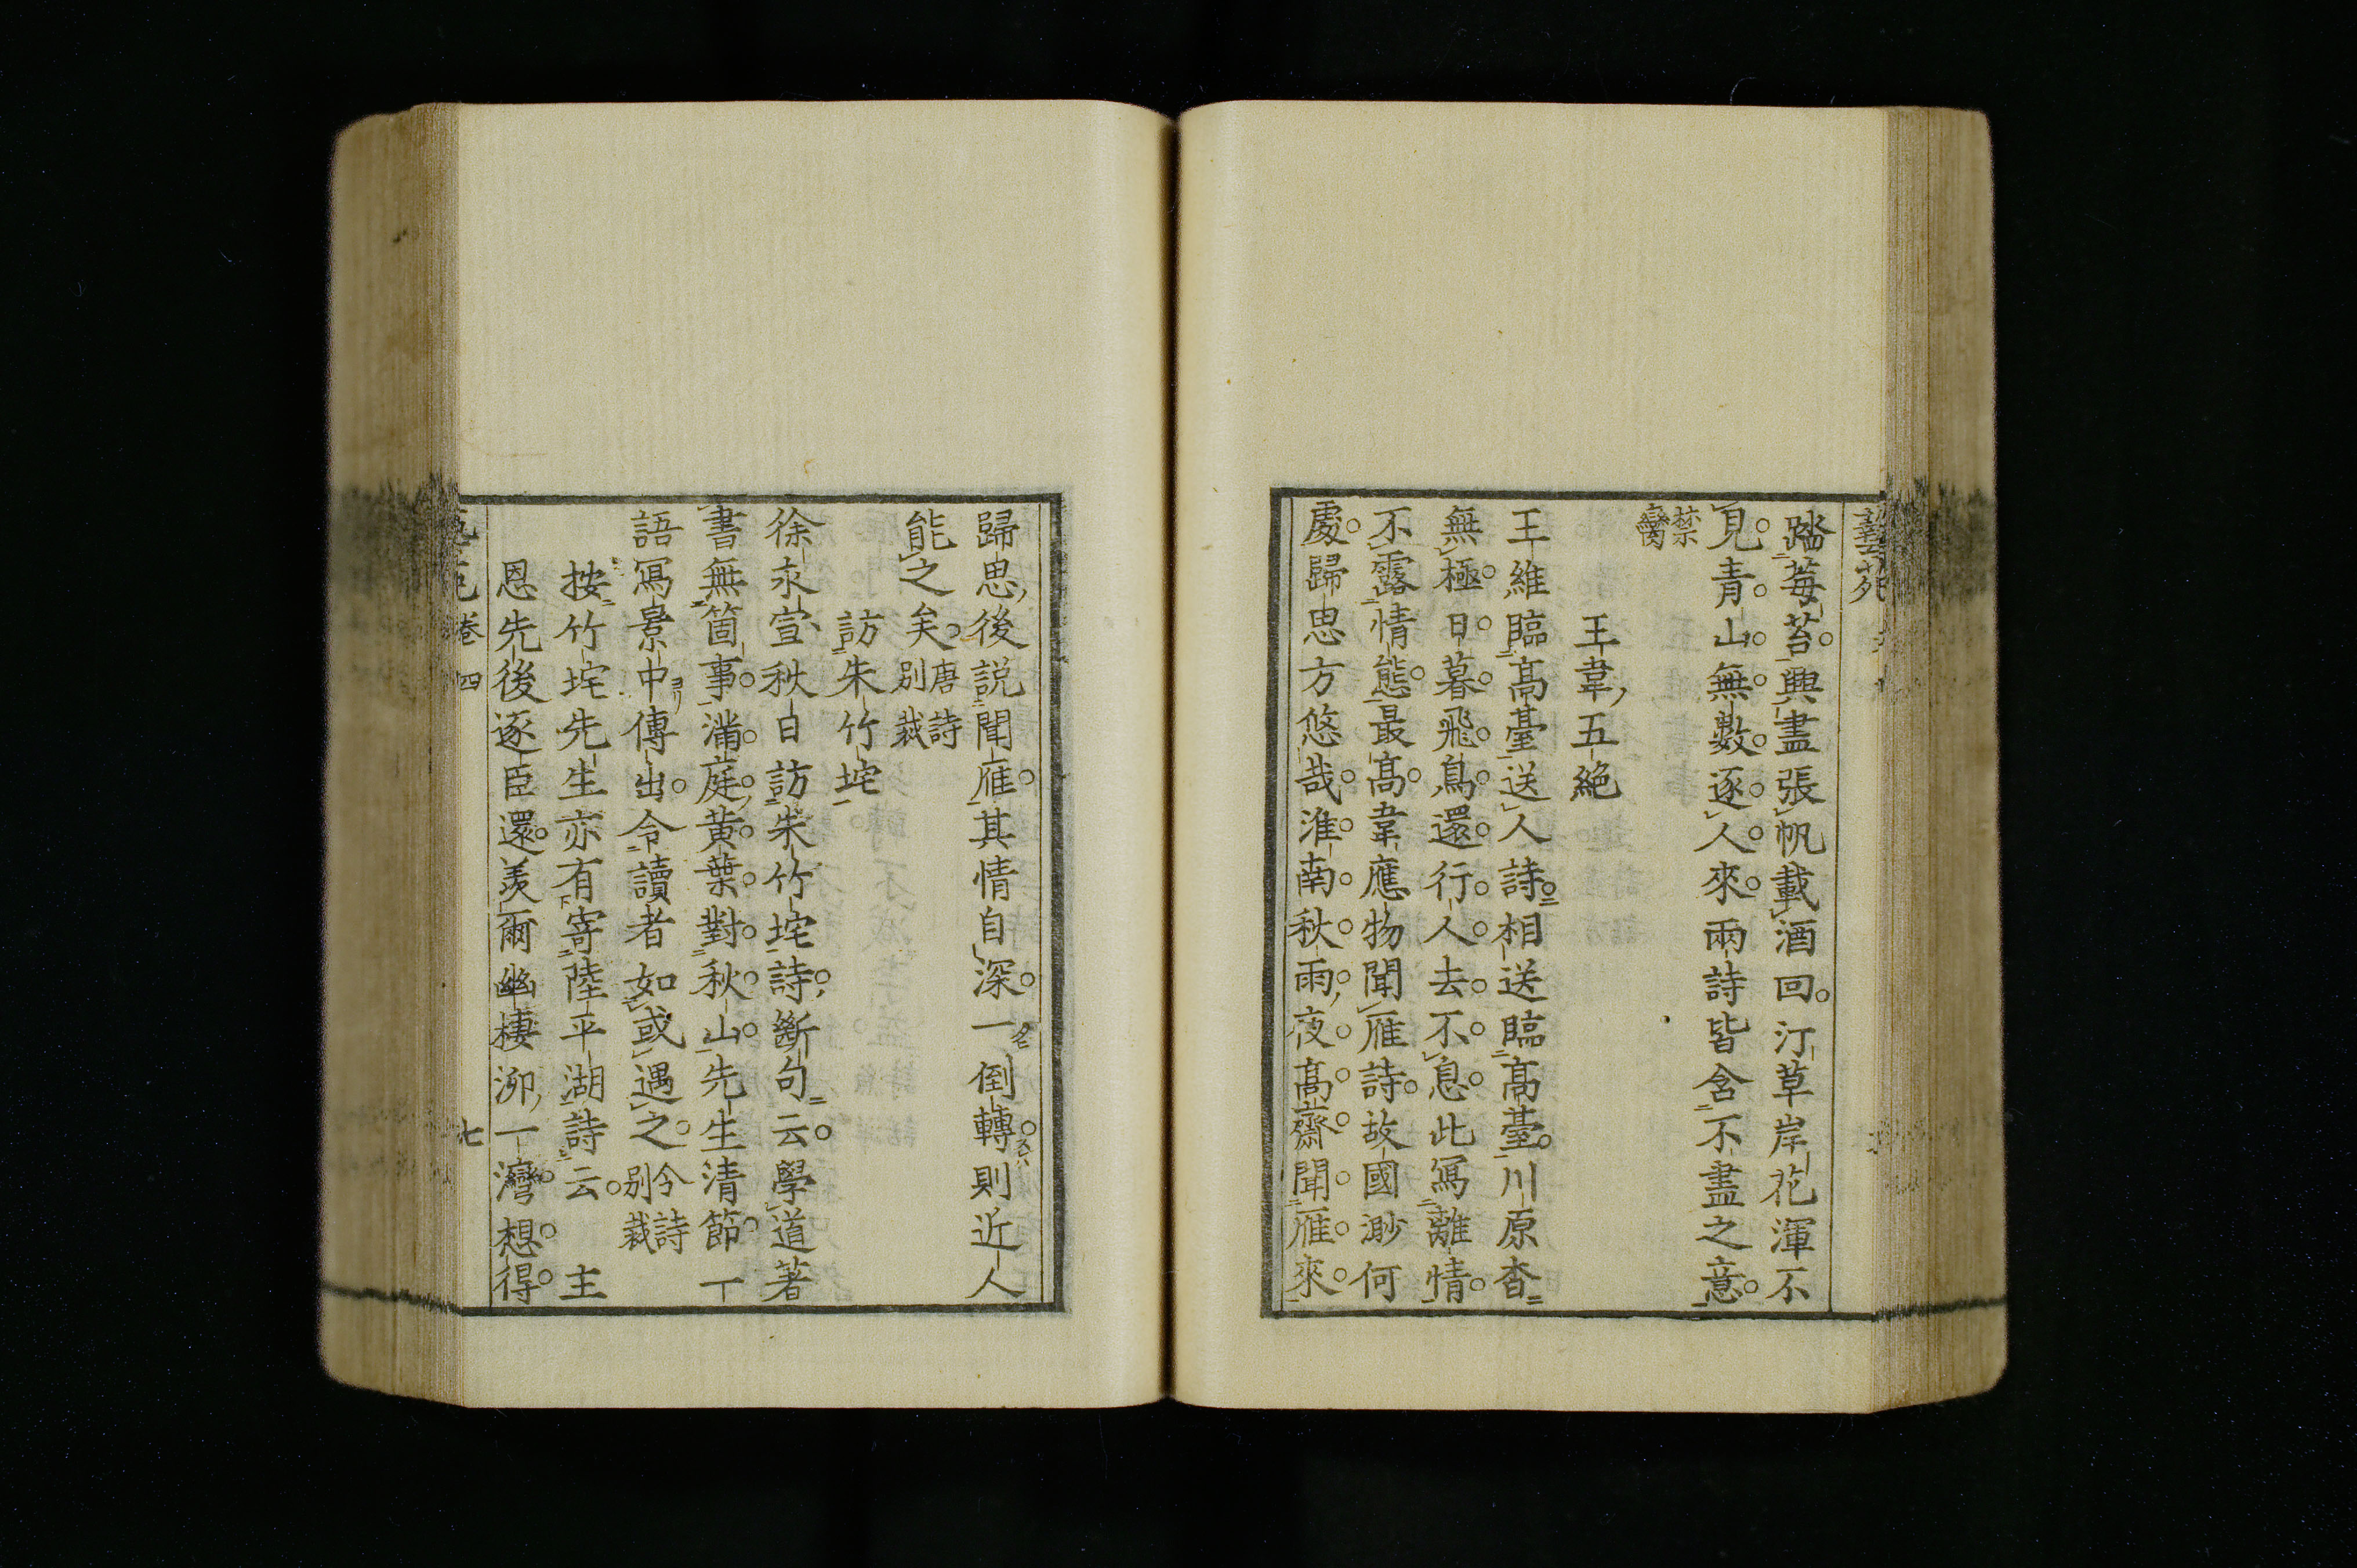 踏莓苔興盡張帆載酒回汀草岸花渾不
見青山無數逐人來兩詩皆含不盡之意
禁臠
王韋五絶
王維臨高臺送人詩相送臨高臺川原杳
無極日暮飛鳥還行人去不息此寫離情
不露情態最高韋應物聞雁詩故國渺何
處歸思方悠哉淮南秋雨夜高齋聞雁來
歸思後説聞雁其情自深一倒轉則近人
能之矣唐詩別裁
訪朱竹垞
徐永宣秋日訪朱竹垞詩斷句云學道著
書無箇事滿庭黄葉對秋山先生清節一
語寫景中傳出令讀者如或遇之今詩別裁
按竹垞先生亦有寄陸平湖詩云 主
恩先後逐臣還羨爾幽棲泖一灣想得
卷四 七